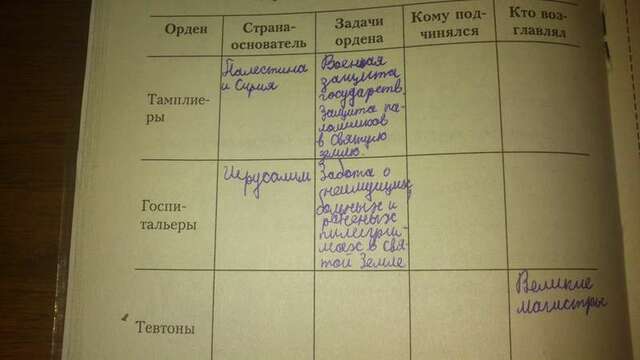 Орден
Страна-
основатель
Задачи
ордена
Кому под-
чинялся
Кто воз-
главлял
Тамплие-
ры
Палестина
и Сирия
Военная
защита
государств,
защита па-
ломников
в святую
землю
Госпи-
тальеры
Иерусалим
Забота о
неимущих,
больных и
раненых
пилигри-
мах в свя-
той земле
Тевтоны
Великие
магистры